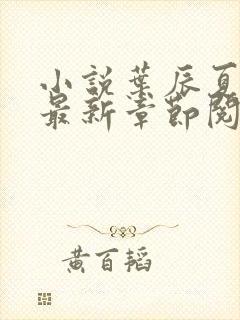 小説葉辰夏
最新章節閱
黃百韜